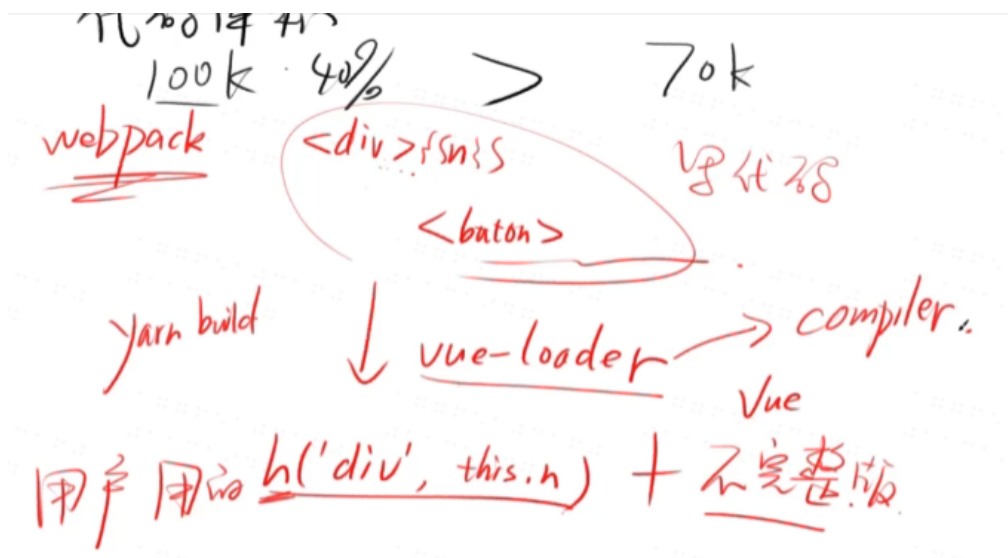 100k · 40% > 70k
webpack <div>{{n}} 写代码
<buton>
yarn build vue-loader → compiler.
Vue
用户用的 h('div', this.n) + 不完整版